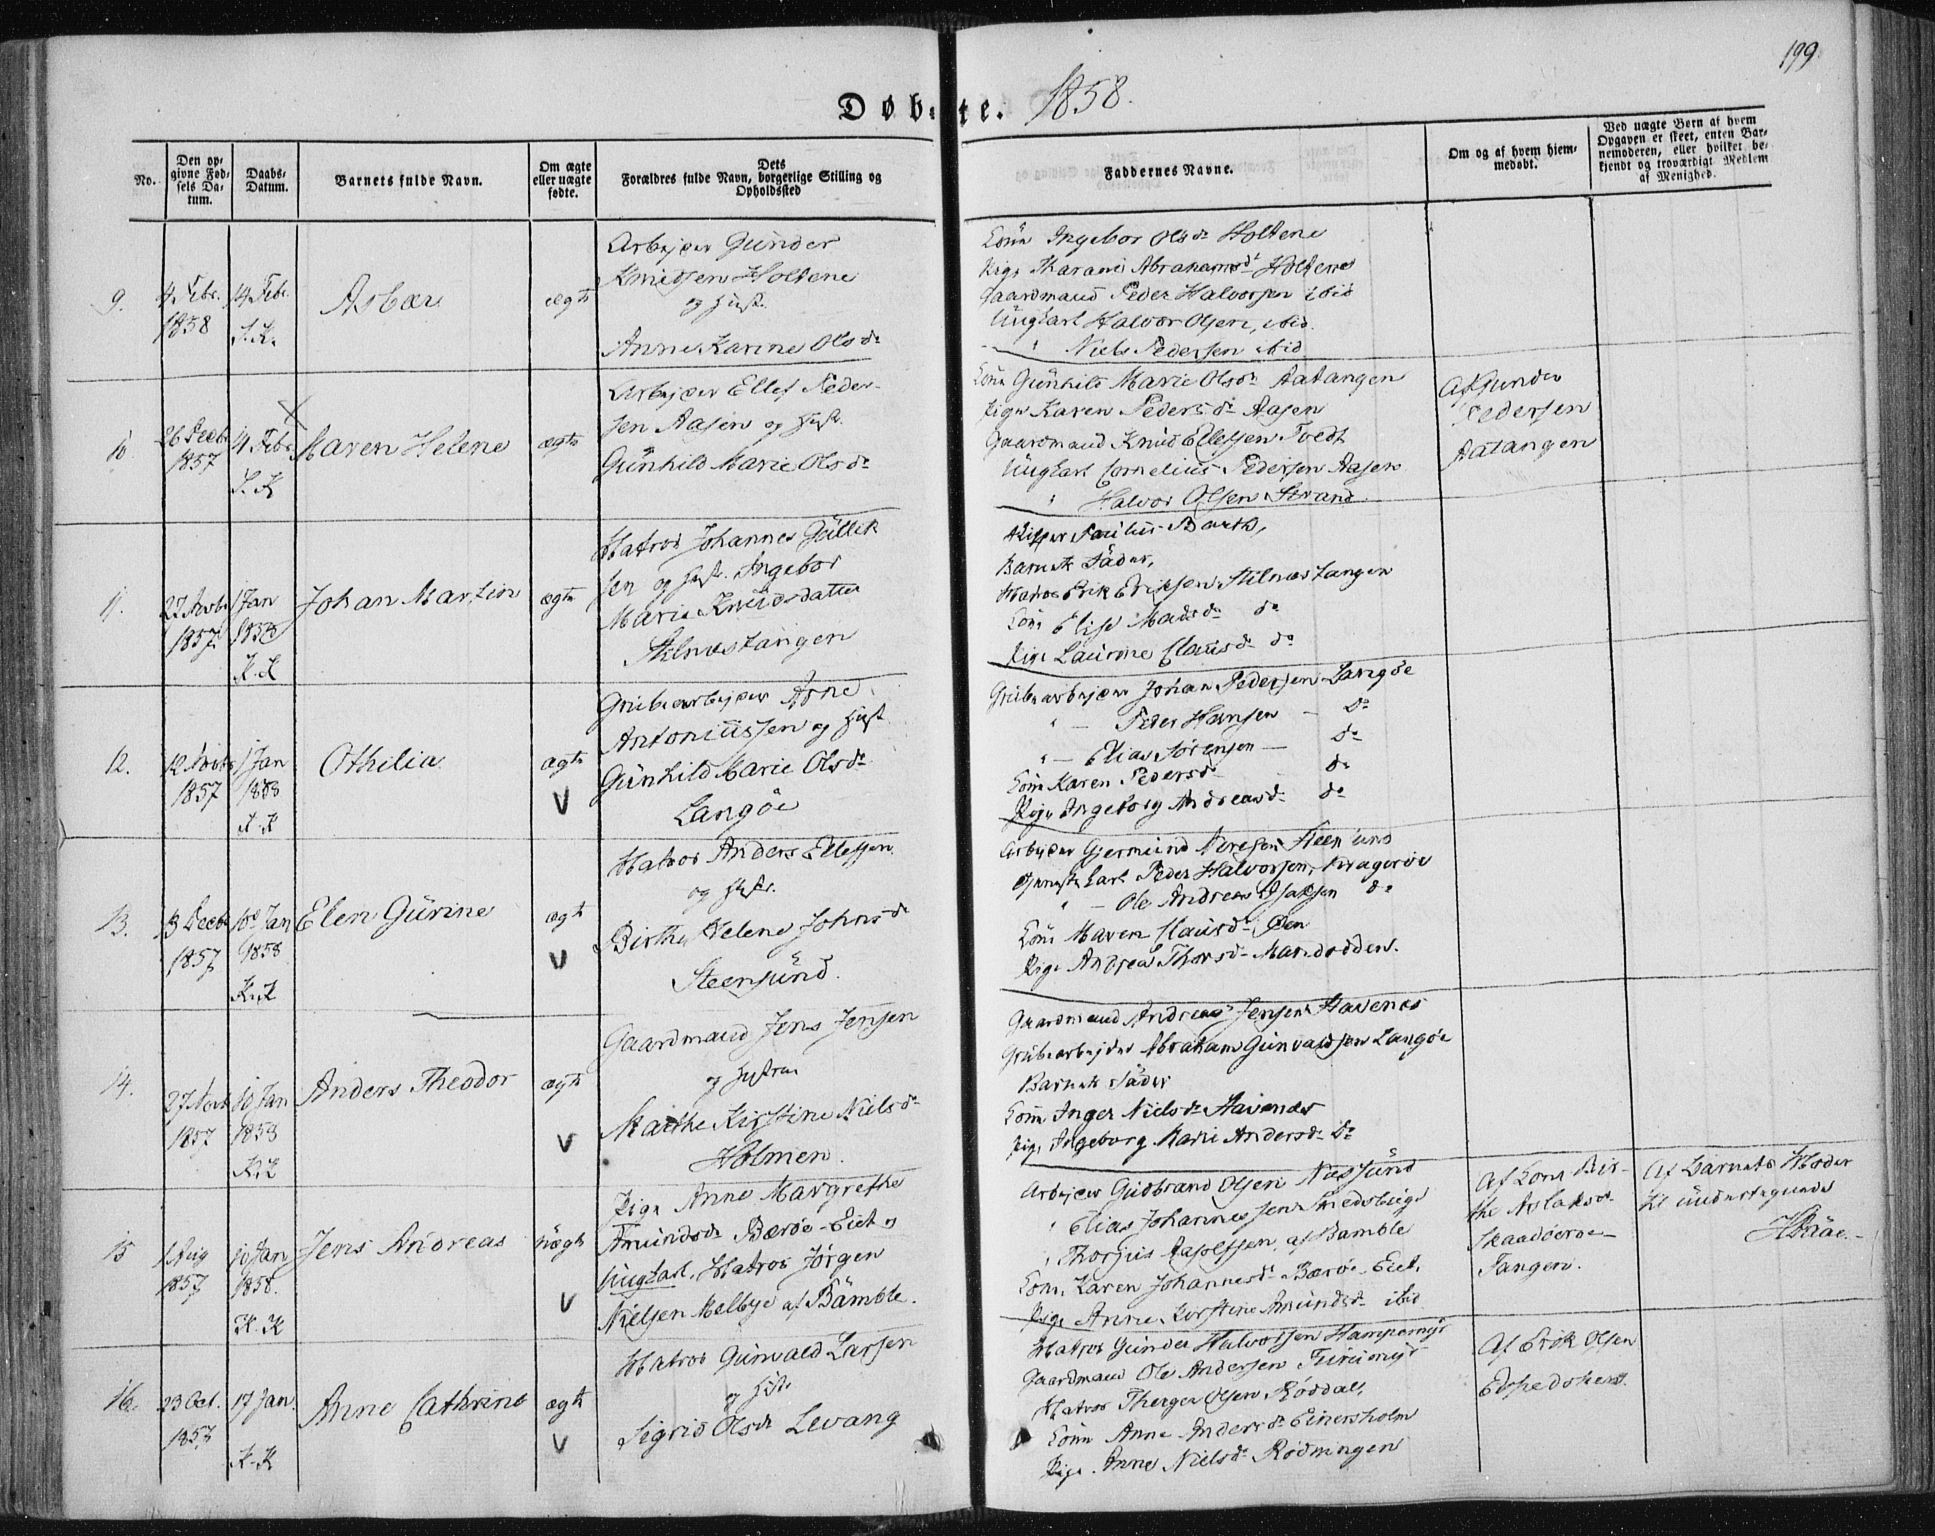 199
Døbte. 1858.
No.
Den opgivne Fødsels Datum.
Daabs-Datum.
Barnets fulde Navn.
Om ægte eller uægte fødte.
Dets Forældres fulde Navn, borgerlige Stilling og Opholdssted
Faddernes Navne.
Om og af hvem hjemmedøbt.
Ved uægte Børn af hvem Opgaven er skeet, enten Barnemoderen, eller hvilket bekjendt og troværdigt Medlem af Menighed.
9.
4 Febr.
1858
14 Febr.
S. K.
Asbær
ægte
Arbejder Gunder
Knudsen Holtene
og Hust.
Anne Karine Olsdr
Kone Ingebor Olsdr Holtene
Pige Abrahamsdr Holtene
Gaardmand Peder Halvorsen ibid
Ungkarl Halvor Olsen, ibid.
" Niels Pedersen ibid
10
26 Decbr
1857
14 Febr.
S. K
Maren Helene
ægte
Arbejder Ellef Peder-
sen Aasen og Hust.
Gunhild Marie Olsdr
Kone Gunhild Marie Olsdr Aatangen
Pige Karen Pedersdr Aasen
Gaardmand Knud Ellefsen Tvedt
Ungkarl Cornelius Pedersen Aasen
" Halvor Olsen Strand
Af Gunder
Pedersen
Aatangen
11.
22 Novbr
1857
1 Jan
1858
K. K
Johan Martin
ægte
Matros Johannes Gullik
sen og Hust. Ingebor
Marie Knudsdatter
Stilnæstangen
Skipper Paulus Barth,
Barnets Fader,
Matros Erik Eriksen Stilnæstangen
Kone Elise Madsdr do
Pige Laurine Clausdr do
12.
12 Novbr
1857
1 Jan
1858
K. K
Othilia
ægte
V
Grubearbejder Arne
Antoniussen og Hust
Gunhild Marie Olsdr
Langöe
Grubearbejder Johan Pedersen Langöe
" — Peder Hansen — do
" — Elias Sörensen — do
Kone Karen Pedersdr do
Pige Ingeborg Andreasdr do
13.
13 Decbr
1857
10 Jan
1858
K. K
Elen Gurine
ægte
V
Matros Anders Ellefsen
og Hustr.
Birthe Helene Johnsdr
Steensund.
Arbejder Gjermund Steensund
Peder Halvorsen, Kragerøe
" — Ole Andreas Isaksen do
Kone Maren Clausdr Öen
Pige Andrea Thorsdr Marodden.
14.
27 Novbr
1857
10 Jan
1858
K. K
Anders Theodor
ægte
V
Gaardmand Jens Jensen
og Hustru
Marthe Kirstine Nielsdr
Holmen.
Gaardmand Andreas Jensen Havenes
Grubearbejder Abraham Gunvaldsen Langöe
Barnets Fader
Kone Inger Nielsdr Havenæs
Pige Ingeborg Marie Andersdr do
15
1 Aug
1857
10 Jan
1858.
K. K
Jens Andreas
uægte
V
Pige Anne Margrethe
Amundsdr Bærøe-Eiet og
Ungkarl, Matros Jørgen
Nielsen Melbye af Bamble.
Arbejder Gudbrand Olsen Næssund
" Elias Johannessen Smedsbugt
" Thorjus Aasolfsen, af Bamble
Kone Karen Johannesdr Bærøe-Eiet,
Pige Anne Kirstine Amundsdr ibid
Af Kone Bir-
the Aslaksdr
Skaadöeröe-
Tangen.
Af Barnets Moder
til undertegnede
16.
23 Oct.
1857
17 Jan.
K. K
Anne Cathrine
ægte
V
Matros Gunvald Larsen
og Hust.
Sigrid Olsdr Levang
Matros Gunder Halvorsen Hampemyr
Gaardmand Ole Andersen Furumyr
Matros Therger Olsen Röddal,
Kone Anne Andersdr Einersholm
Pige. Anne Nielsdr Rödningen
Af Erik Olsen